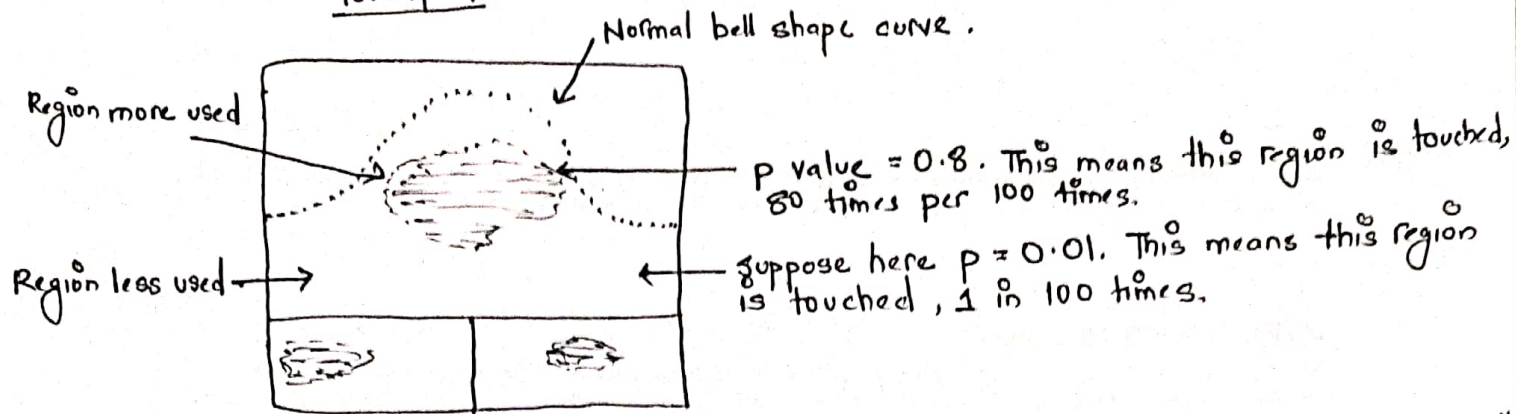 Normal bell shape curve.
Region more used
p value = 0.8. This means this region is touched,
80 times per 100 times.
Region less used
suppose here p = 0.01. This means this region
is touched, 1 in 100 times.